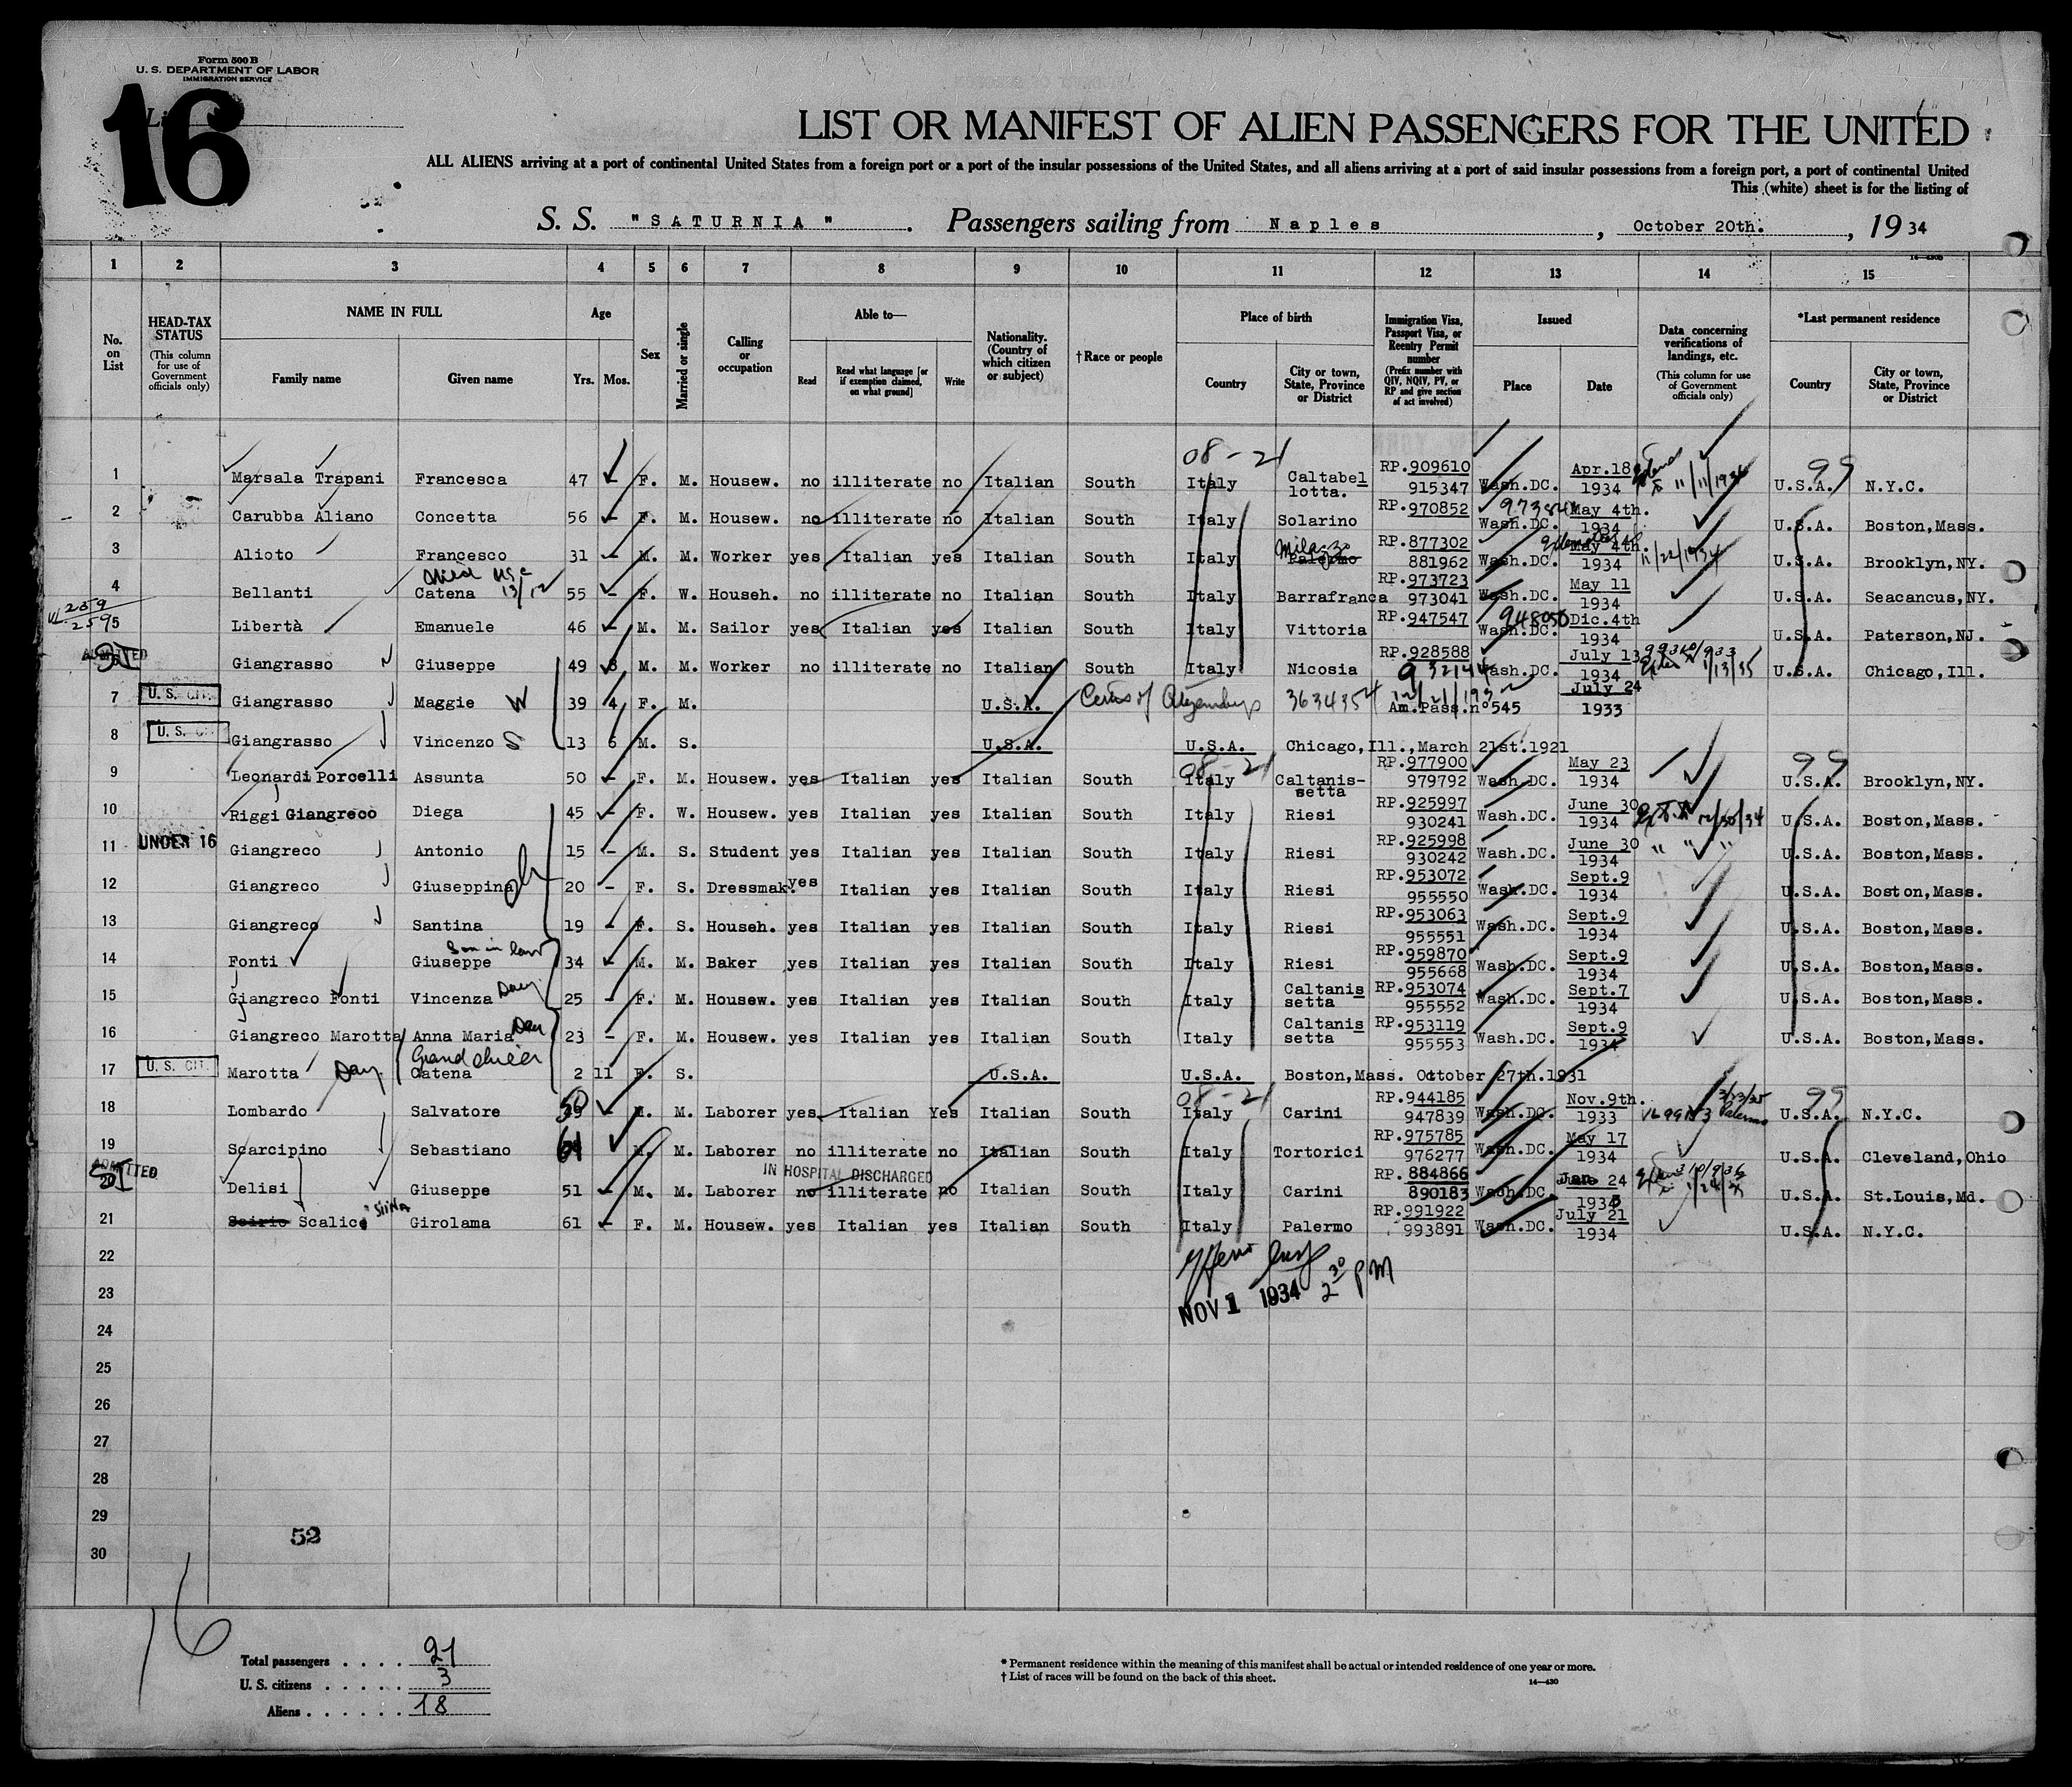 Form 500 B
U. S. DEPARTMENT OF LABOR
IMMIGRATION SERVICE
16
LIST OR MANIFEST OF ALIEN PASSENGERS FOR THE UNITED
ALL ALIENS arriving at a port of continental United States from a foreign port or a port of the insular possessions of the United States, and all aliens arriving at a port of said insular possessions from a foreign port, a port of continental United
This (white) sheet is for the listing of
S. S. "SATURNIA". Passengers sailing from Naples, October 20th., 19 34
1 2 3 4 5 6 7 8 9 10 11 12 13 14 15
No. on List
HEAD-TAX STATUS (This column for use of Government officials only)
NAME IN FULL Family name Given name
Age Yrs. Mos.
Sex
Married or single
Calling or occupation
Able to— Read Read what language [or if exemption claimed, on what ground] Write
Nationality. (Country of which citizen or subject)
†Race or people
Place of birth Country City or town, State, Province or District
Immigration Visa, Passport Visa, or Reentry Permit number (Prefix number with QIV, NQIV, PV, or RP and give section of act involved)
Issued Place Date
Data concerning verifications of landings, etc. (This column for use of Government officials only)
*Last permanent residence Country City or town, State, Province or District
08-21 99
1 Marsala Trapani Francesca 47 - F. M. Housew. no illiterate no Italian South Italy Caltabellotta. RP.909610 915347 Wash.DC. Apr.18 1934 11/11/1934 U.S.A. N.Y.C.
2 Carubba Aliano Concetta 56 - F. M. Housew. no illiterate no Italian South Italy Solarino RP.970852 Wash.DC. May 4th. 1934 U.S.A. Boston,Mass.
3 Alioto Francesco 31 - M. M. Worker yes Italian yes Italian South Italy Palermo RP.877302 881962 Wash.DC. May 4th. 1934 11/22/1934 U.S.A. Brooklyn,NY.
4 Bellanti Catena 55 - F. W. Househ. no illiterate no Italian South Italy Barrafranca RP.973723 973041 Wash.DC. May 11 1934 U.S.A. Seacancus,NY.
5 Libertà Emanuele 46 - M. M. Sailor yes Italian yes Italian South Italy Vittoria RP.947547 948050 Wash.DC. Dic.4th 1934 U.S.A. Paterson,NJ.
ADMITTED Giangrasso Giuseppe 49 8 M. M. Worker no illiterate no Italian South Italy Nicosia RP.928588 Wash.DC. July 13 1934 U.S.A. Chicago,Ill.
7 U. S. CIT. Giangrasso Maggie W 39 4 F. M. U.S.A. 3634354 12/21/1932 Am.Pass.n°545 July 24 1933
8 U. S. CIT. Giangrasso Vincenzo S 13 6 M. S. U.S.A. U.S.A. Chicago,Ill.,March 21st.1921
08-21 99
9 Leonardi Porcelli Assunta 50 - F. M. Housew. yes Italian yes Italian South Italy Caltanissetta RP.977900 979792 Wash.DC. May 23 1934 U.S.A. Brooklyn,NY.
10 Riggi Giangreco Diega 45 - F. W. Housew. yes Italian yes Italian South Italy Riesi RP.925997 930241 Wash.DC. June 30 1934 U.S.A. Boston,Mass.
11 UNDER 16 Giangreco Antonio 15 - M. S. Student yes Italian yes Italian South Italy Riesi RP.925998 930242 Wash.DC. June 30 1934 " " " U.S.A. Boston,Mass.
12 Giangreco Giuseppina 20 - F. S. Dressmak. yes Italian yes Italian South Italy Riesi RP.953072 955550 Wash.DC. Sept.9 1934 U.S.A. Boston,Mass.
13 Giangreco Santina 19 - F. S. Househ. yes Italian yes Italian South Italy Riesi RP.953063 955551 Wash.DC. Sept.9 1934 U.S.A. Boston,Mass.
14 Fonti Giuseppe Son in law 34 - M. M. Baker yes Italian yes Italian South Italy Riesi RP.959870 955668 Wash.DC. Sept.9 1934 U.S.A. Boston,Mass.
15 Giangreco Fonti Vincenza 25 - F. M. Housew. yes Italian yes Italian South Italy Caltanissetta RP.953074 955552 Wash.DC. Sept.7 1934 U.S.A. Boston,Mass.
16 Giangreco Marotta Anna Maria 23 - F. M. Housew. yes Italian yes Italian South Italy Caltanissetta RP.953119 955553 Wash.DC. Sept.9 1934 U.S.A. Boston,Mass.
17 U. S. CIT. Marotta Catena 2 11 F. S. U.S.A. U.S.A. Boston,Mass. October 27th.1931
08-21 99
18 Lombardo Salvatore 50 - M. M. Laborer yes Italian Yes Italian South Italy Carini RP.944185 947839 Wash.DC. Nov.9th. 1933 Palermo U.S.A. N.Y.C.
19 Scarcipino Sebastiano 61 M. M. Laborer no illiterate no Italian South Italy Tortorici RP.975785 976277 Wash.DC. May 17 1934 U.S.A. Cleveland,Ohio
IN HOSPITAL DISCHARGED
ADMITTED 20 Delisi Giuseppe 51 - M. M. Laborer no illiterate no Italian South Italy Carini RP.884866 890183 Wash.DC. Jan. 24 193 U.S.A. St.Louis,Md.
21 Scirio Scalici Girolama 61 - F. M. Housew. yes Italian yes Italian South Italy Palermo RP.991922 993891 Wash.DC. July 21 1934 U.S.A. N.Y.C.
22
NOV 1 1934 2 30 PM
23
24
25
26
27
28
29
52
30
16
Total passengers . . . . 21
U. S. citizens . . . . . 3
Aliens . . . . . . 18
* Permanent residence within the meaning of this manifest shall be actual or intended residence of one year or more.
† List of races will be found on the back of this sheet.
14—430